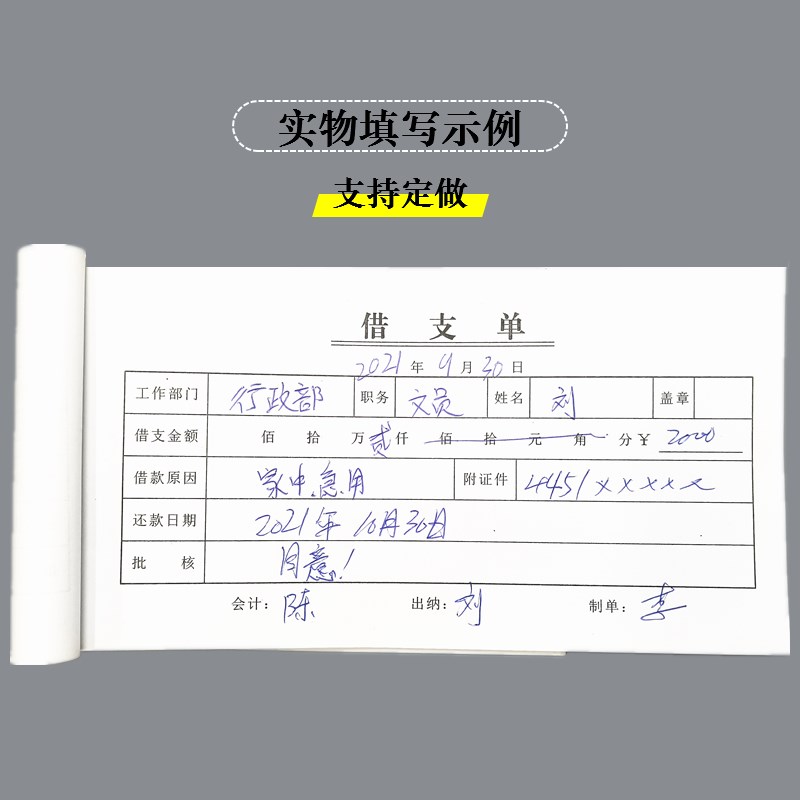 实物填写示例
支持定做
借支单
2021年9月30日
工作部门 行政部 职务 文员 姓名 刘 盖章
借支金额 佰 拾 万 贰仟 佰 拾 元 角 分 ¥ 2000
借款原因 家中急用 附证件 4451xxxxx
还款日期 2021年10月30日
批核 同意!
会计: 陈 出纳: 刘 制单: 李